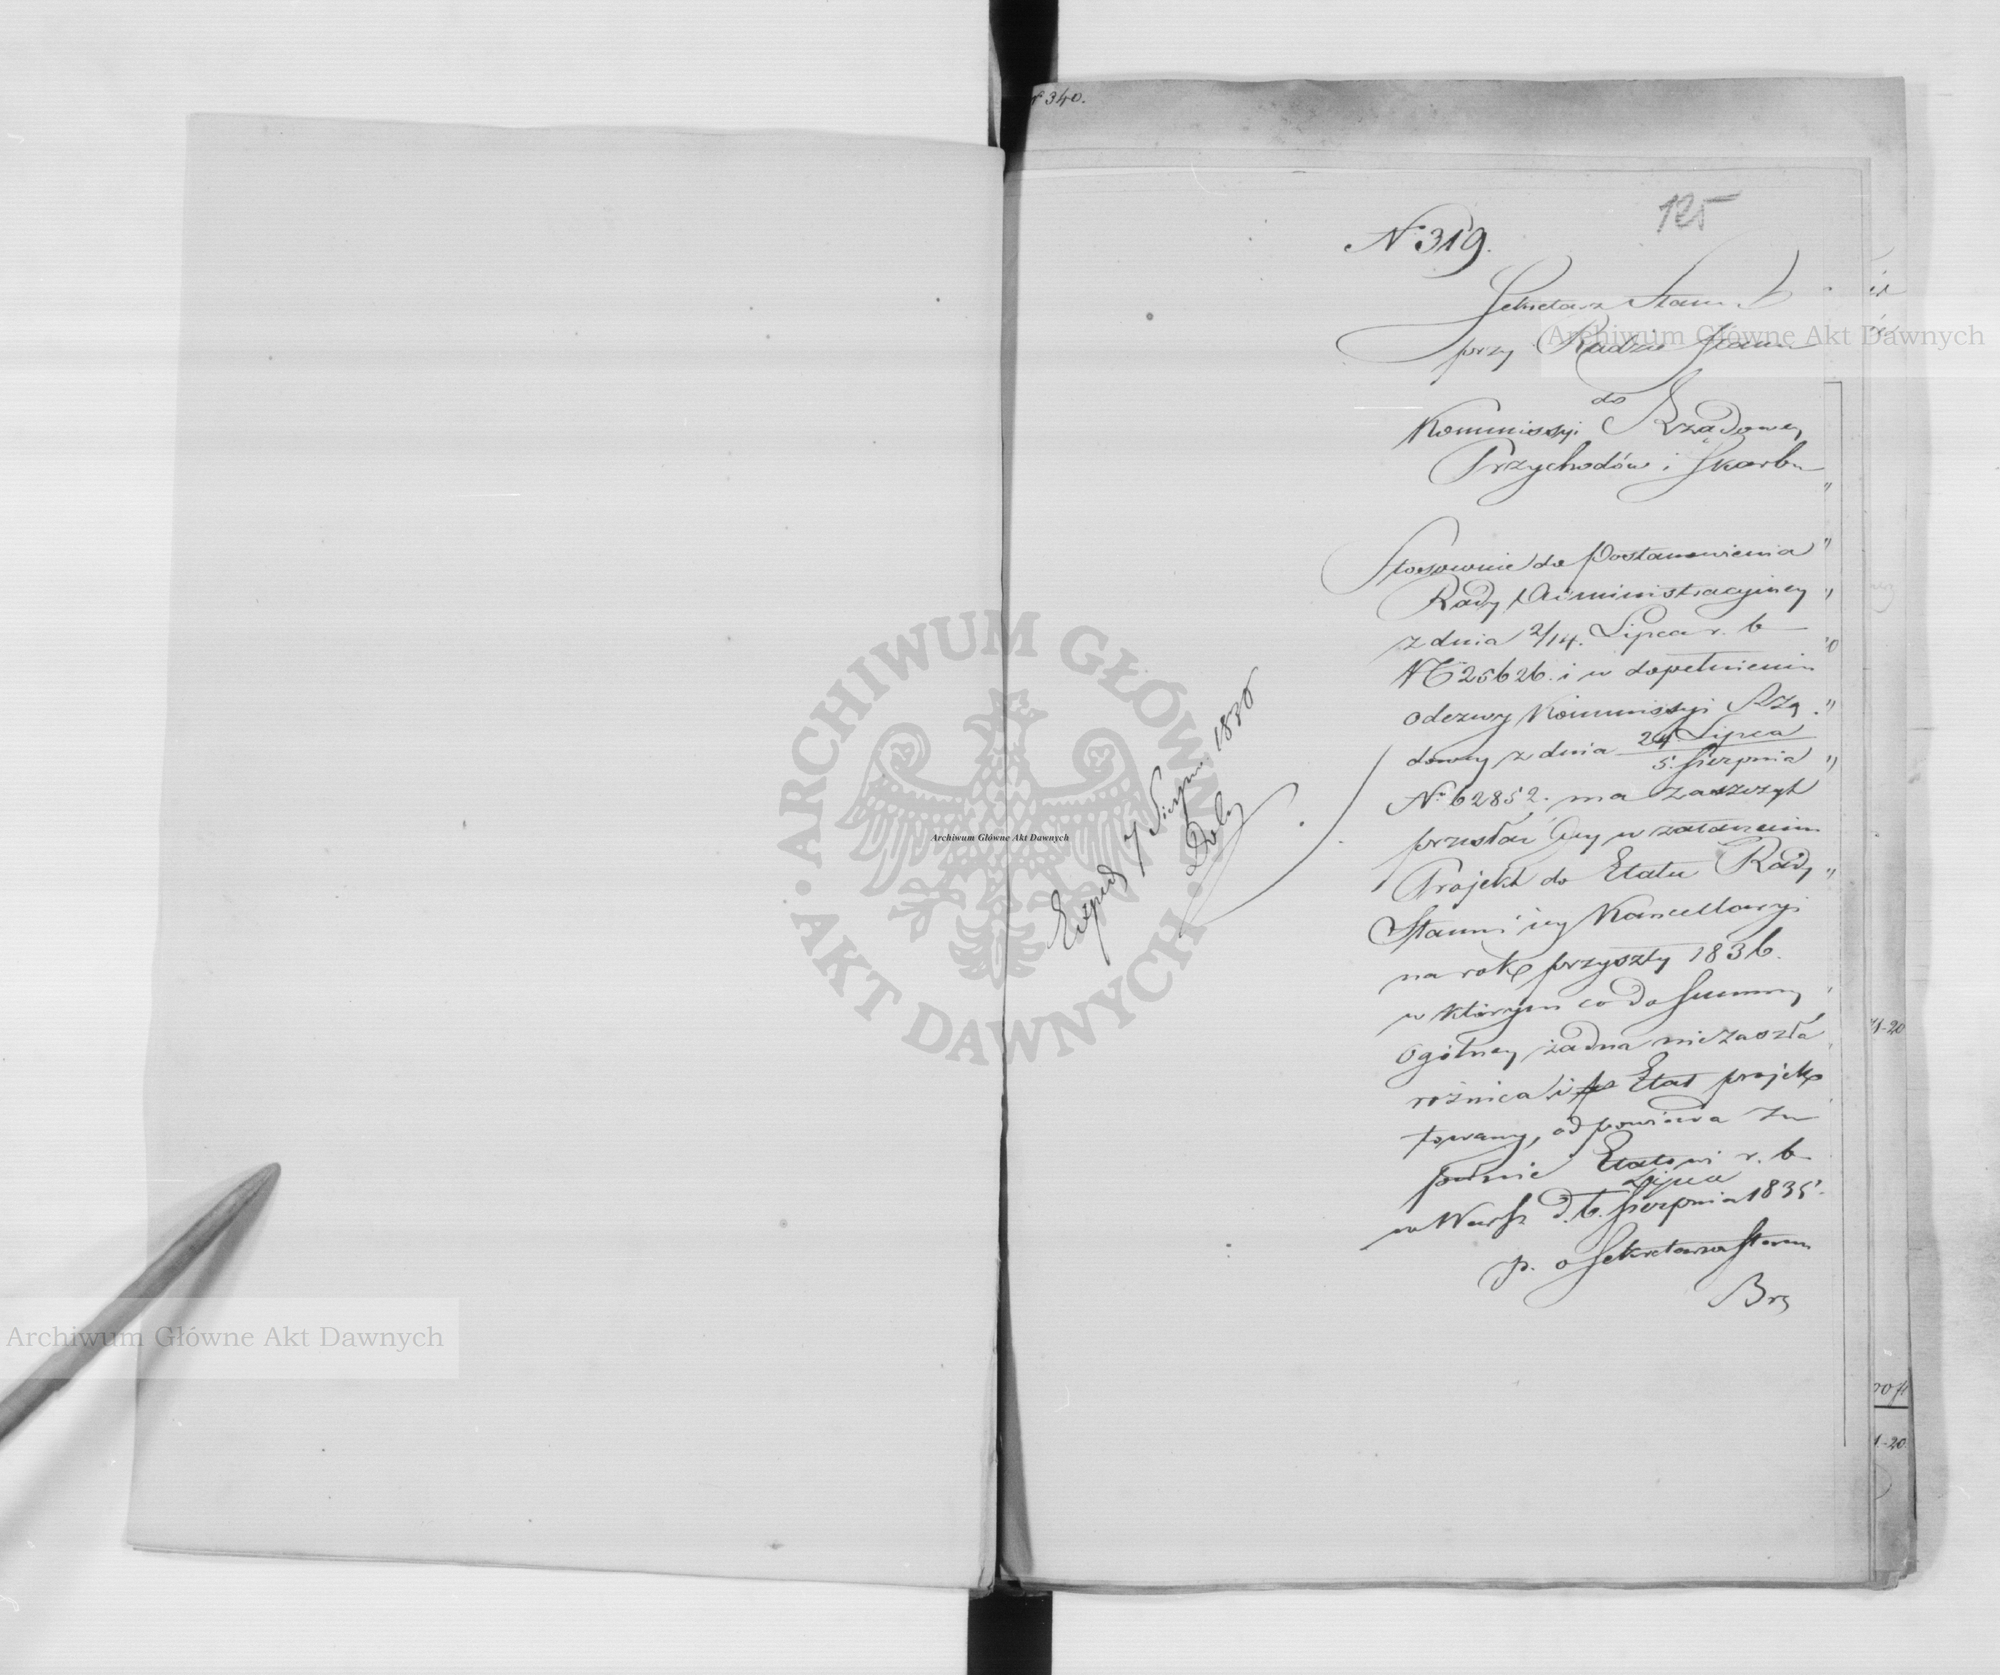 № 340.
125
№ 319.
Sekretarz Stanu
przy Radzie Stanu
do
Kommissyi Rządowey
Przychodów i Skarbu
Stosownie do Postanowienia
Rady Administracyjney
z dnia 2/14. Lipca r. b
№ 25626. i w dopełnieniu
odezwy Kommissyi Rzą
dowey z dnia 24 Lipca
5. Sierpnia
№ 62852. ma zaszczyt
przesłać Jey w załączeniu
Projekt do Etatu Rady
Stanu i jey Kancellaryi
na rok przyszły 1836.
w którym co do Summy
ogólney żadna nie zaszła
różnica, i Etat projek
towany, odpowiada zu
pełnie Etatowi r. b
Lipca
w Warsz d. 6. Sierpnia 1835.
p. o Sekretarza Stanu
Exped 7 Sierpn. 1835
Archiwum Główne Akt Dawnych
Archiwum Główne Akt Dawnych
Archiwum Główne Akt Dawnych
ARCHIWUM GŁÓWNE AKT DAWNYCH